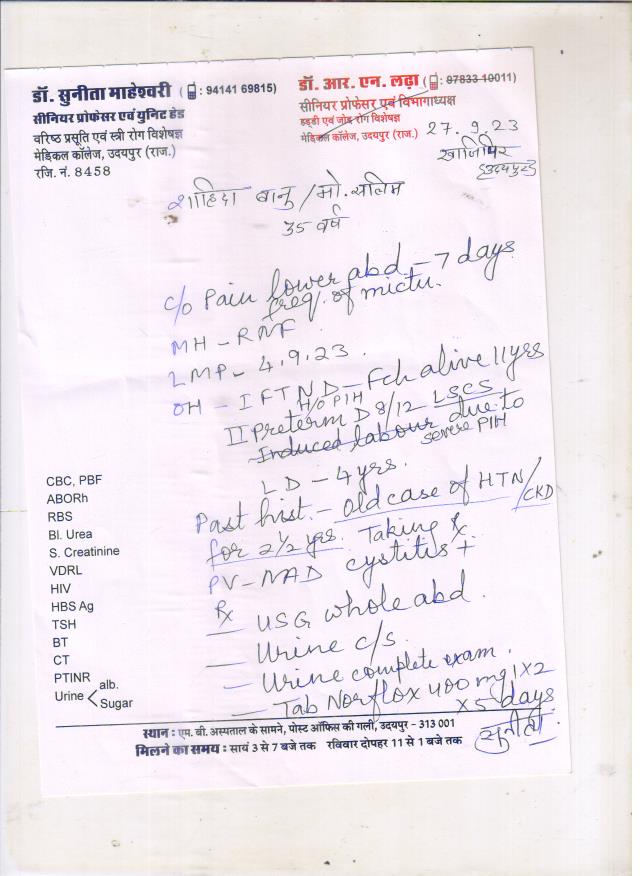 डॉ. सुनीता माहेश्वरी (📱: 94141 69815)
सीनियर प्रोफेसर एवं युनिट हेड
वरिष्ठ प्रसूति एवं स्त्री रोग विशेषज्ञ
मेडिकल कॉलेज, उदयपुर (राज.)
रजि. नं. 8458
डॉ. आर. एन. लढ़ा (📱: 97833 10011)
सीनियर प्रोफेसर एवं विभागाध्यक्ष
हड्डी एवं जोड़ रोग विशेषज्ञ
मेडिकल कॉलेज, उदयपुर (राज.)
27.9.23
उदयपुर
शाहिदा बानु / मो. सलिम
35 वर्ष
c/o Pain lower abd. - 7 days
freq. of mictu.
MH - RNF
LMP - 4.9.23.
OH - I FTND - Fch alive 11 yrs
H/O PIH
II Preterm D 8/12 LSCS
Induced labour due to
severe PIH
LD - 4 yrs.
Past hist. - Old case of HTN/CKD
for 2½ yrs. Taking Rx
PV - NAD cystitis +
Rx
— USG whole abd.
— Urine c/s.
— Urine complete exam.
— Tab Norflox 400 mg 1x2
x 5 days
सुनीता
CBC, PBF
ABORh
RBS
Bl. Urea
S. Creatinine
VDRL
HIV
HBS Ag
TSH
BT
CT
PTINR
Urine < alb.
Sugar
स्थान : एम. बी. अस्पताल के सामने, पोस्ट ऑफिस की गली, उदयपुर - 313 001
मिलने का समय : सायं 3 से 7 बजे तक रविवार दोपहर 11 से 1 बजे तक